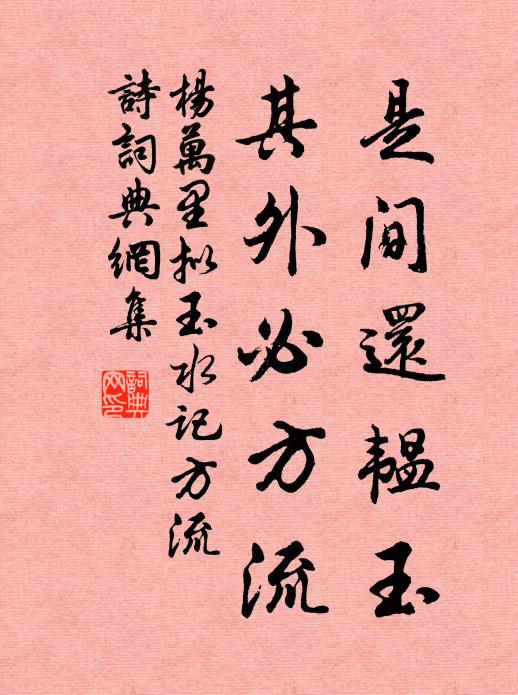 是間還韞玉
其外必方流
楊萬里拟玉水記方流
詩詞典網集
詞典網印